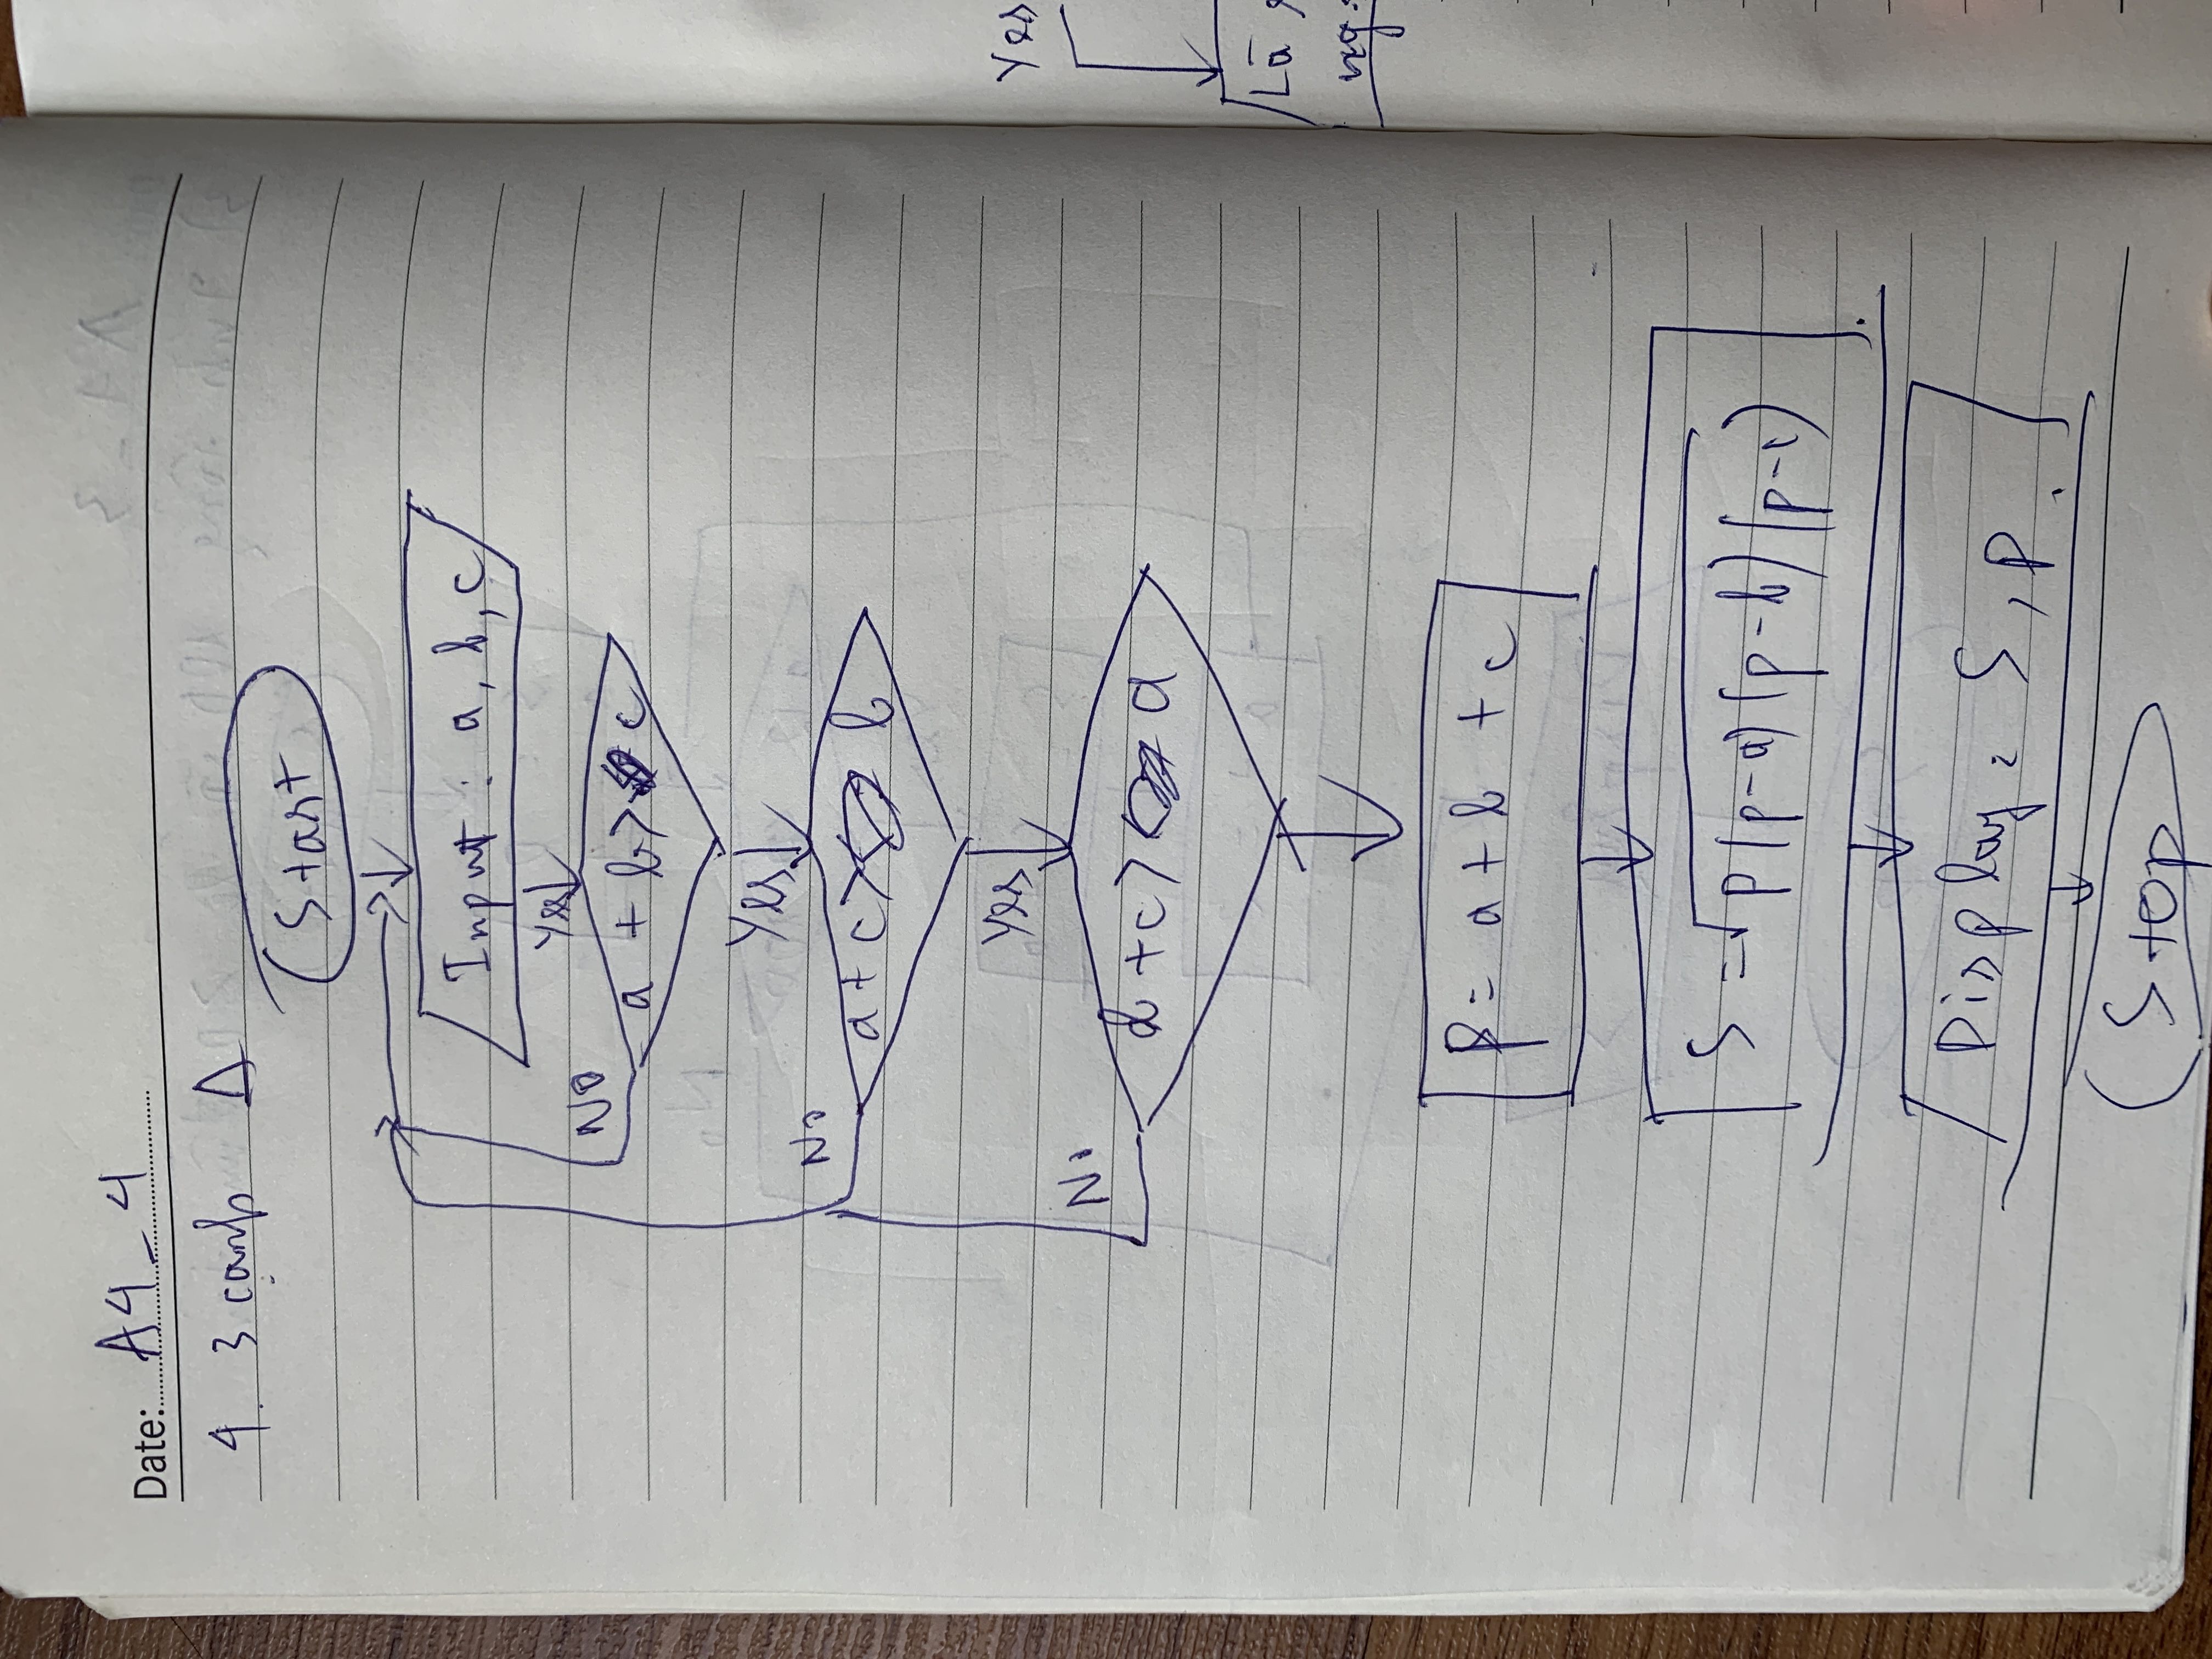 Date: A4_4
4. 3 cạnh Δ
Start
Input : a, b, c
Yes
No
a + b > c
Yes
No
a + c > b
Yes
No
b + c > a
p = a + b + c
S = √p(p-a)(p-b)(p-c)
Display : S, p.
Stop
Yes
Là